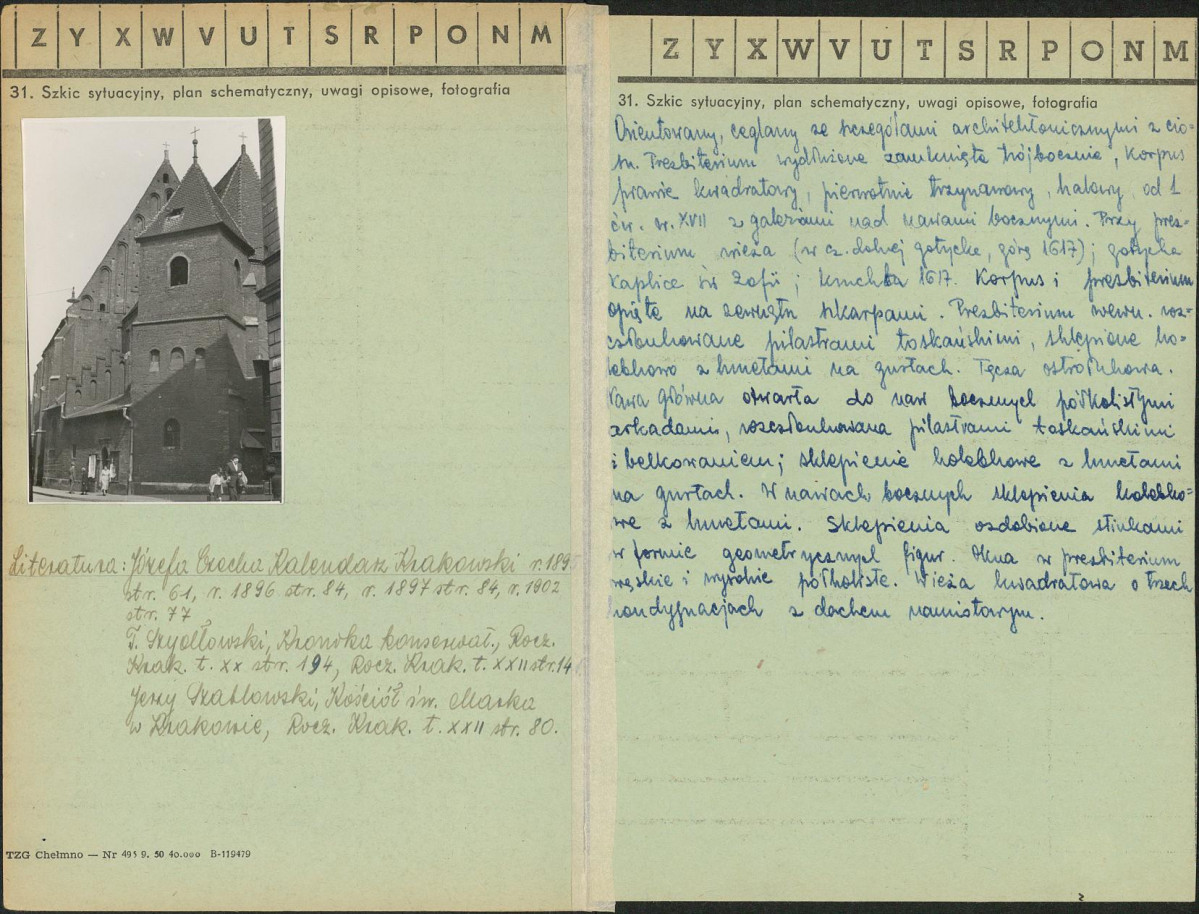 Z Y X W V U T S R P O N M
31. Szkic sytuacyjny, plan schematyczny, uwagi opisowe, fotografia
Literatura: Józefa Czecha Kalendarz Krakowski r. 1895
str. 61, r. 1896 str. 84, r. 1897 str. 84, r. 1902
str. 77
T. Szydłowski, Kronika konserwat., Rocz.
Krak. t. XX str. 194, Rocz. Krak. t. XXII str. 14
Jerzy Szabłowski, Kościół św. Marka
w Krakowie, Rocz. Krak. t. XXII str. 80.
TZG Chełmno — Nr 495 9. 50 40.000 B-119479
Z Y X W V U T S R P O N M
31. Szkic sytuacyjny, plan schematyczny, uwagi opisowe, fotografia
Orientowany, ceglany ze szczegółami architektonicznymi z cio-
su. Prezbiterium wydłużone zamknięte trójbocznie, Korpus
prawie kwadratowy, pierwotnie trzynawowy, halowy, od 1
ćw. w. XVII z galeriami nad nawami bocznymi. Przy prez-
biterium wieża (w cz. dolnej gotycka, górą 1617); gotycka
Kaplica św Zofii; kruchta 1617. Korpus i prezbiterium
opięte na zewnątrz skarpami. Prezbiterium wewn. roz-
członkowane pilastrami toskańskimi, sklepione ko-
lebkowo z lunetami na gurtach. Tęcza ostrołukowa.
Nawa główna otwarta do naw bocznych półkolistymi
arkadami, rozczłonkowana pilastrami toskańskimi
i belkowaniem; sklepienie kolebkowe z lunetami
na gurtach. W nawach bocznych sklepienia kolebko-
we z lunetami. Sklepienia ozdobione stiukami
w formie geometrycznych figur. Okna w prezbiterium
wąskie i wysokie półkoliste. Wieża kwadratowa o trzech
kondygnacjach z dachem namiotowym.